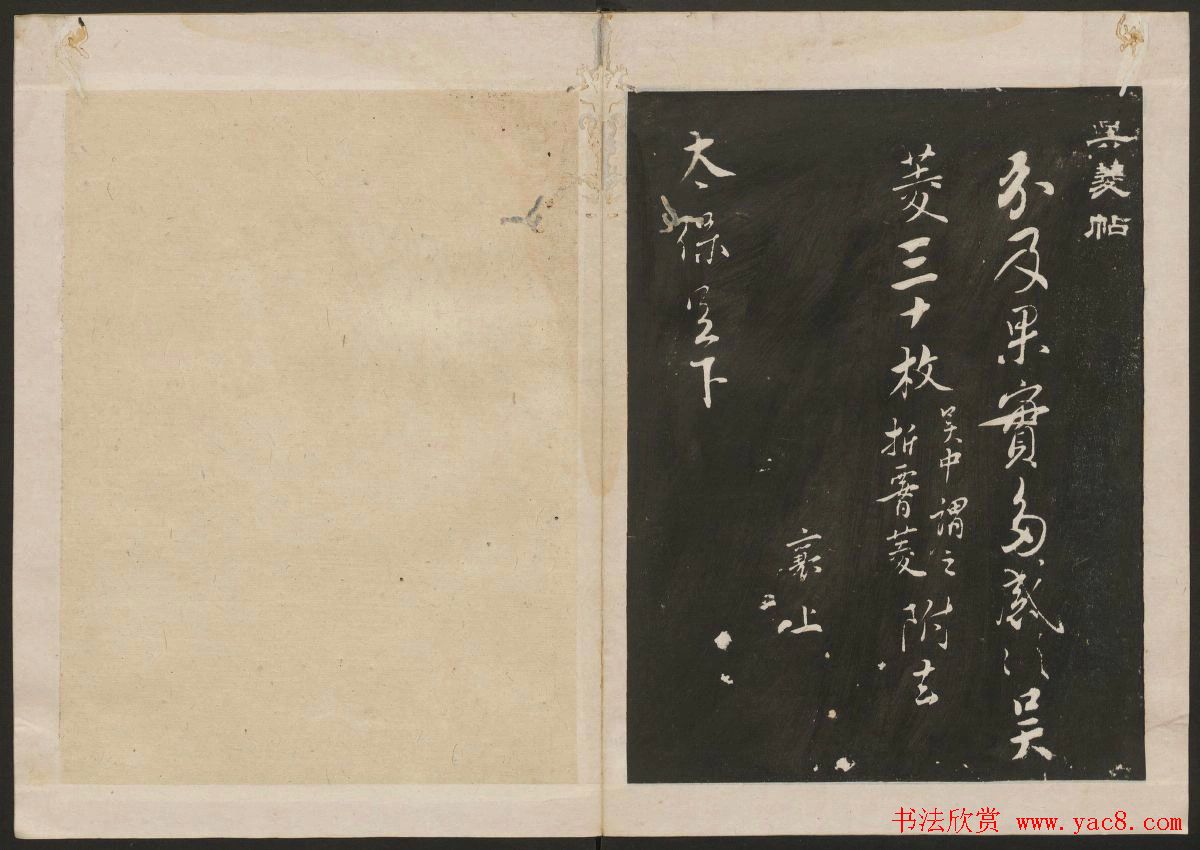 吳菱帖
分及果實多感多感吳
菱三十枚
吳中謂之
折腰菱
附去
襄上
太保足下
书法欣赏 www.yac8.com